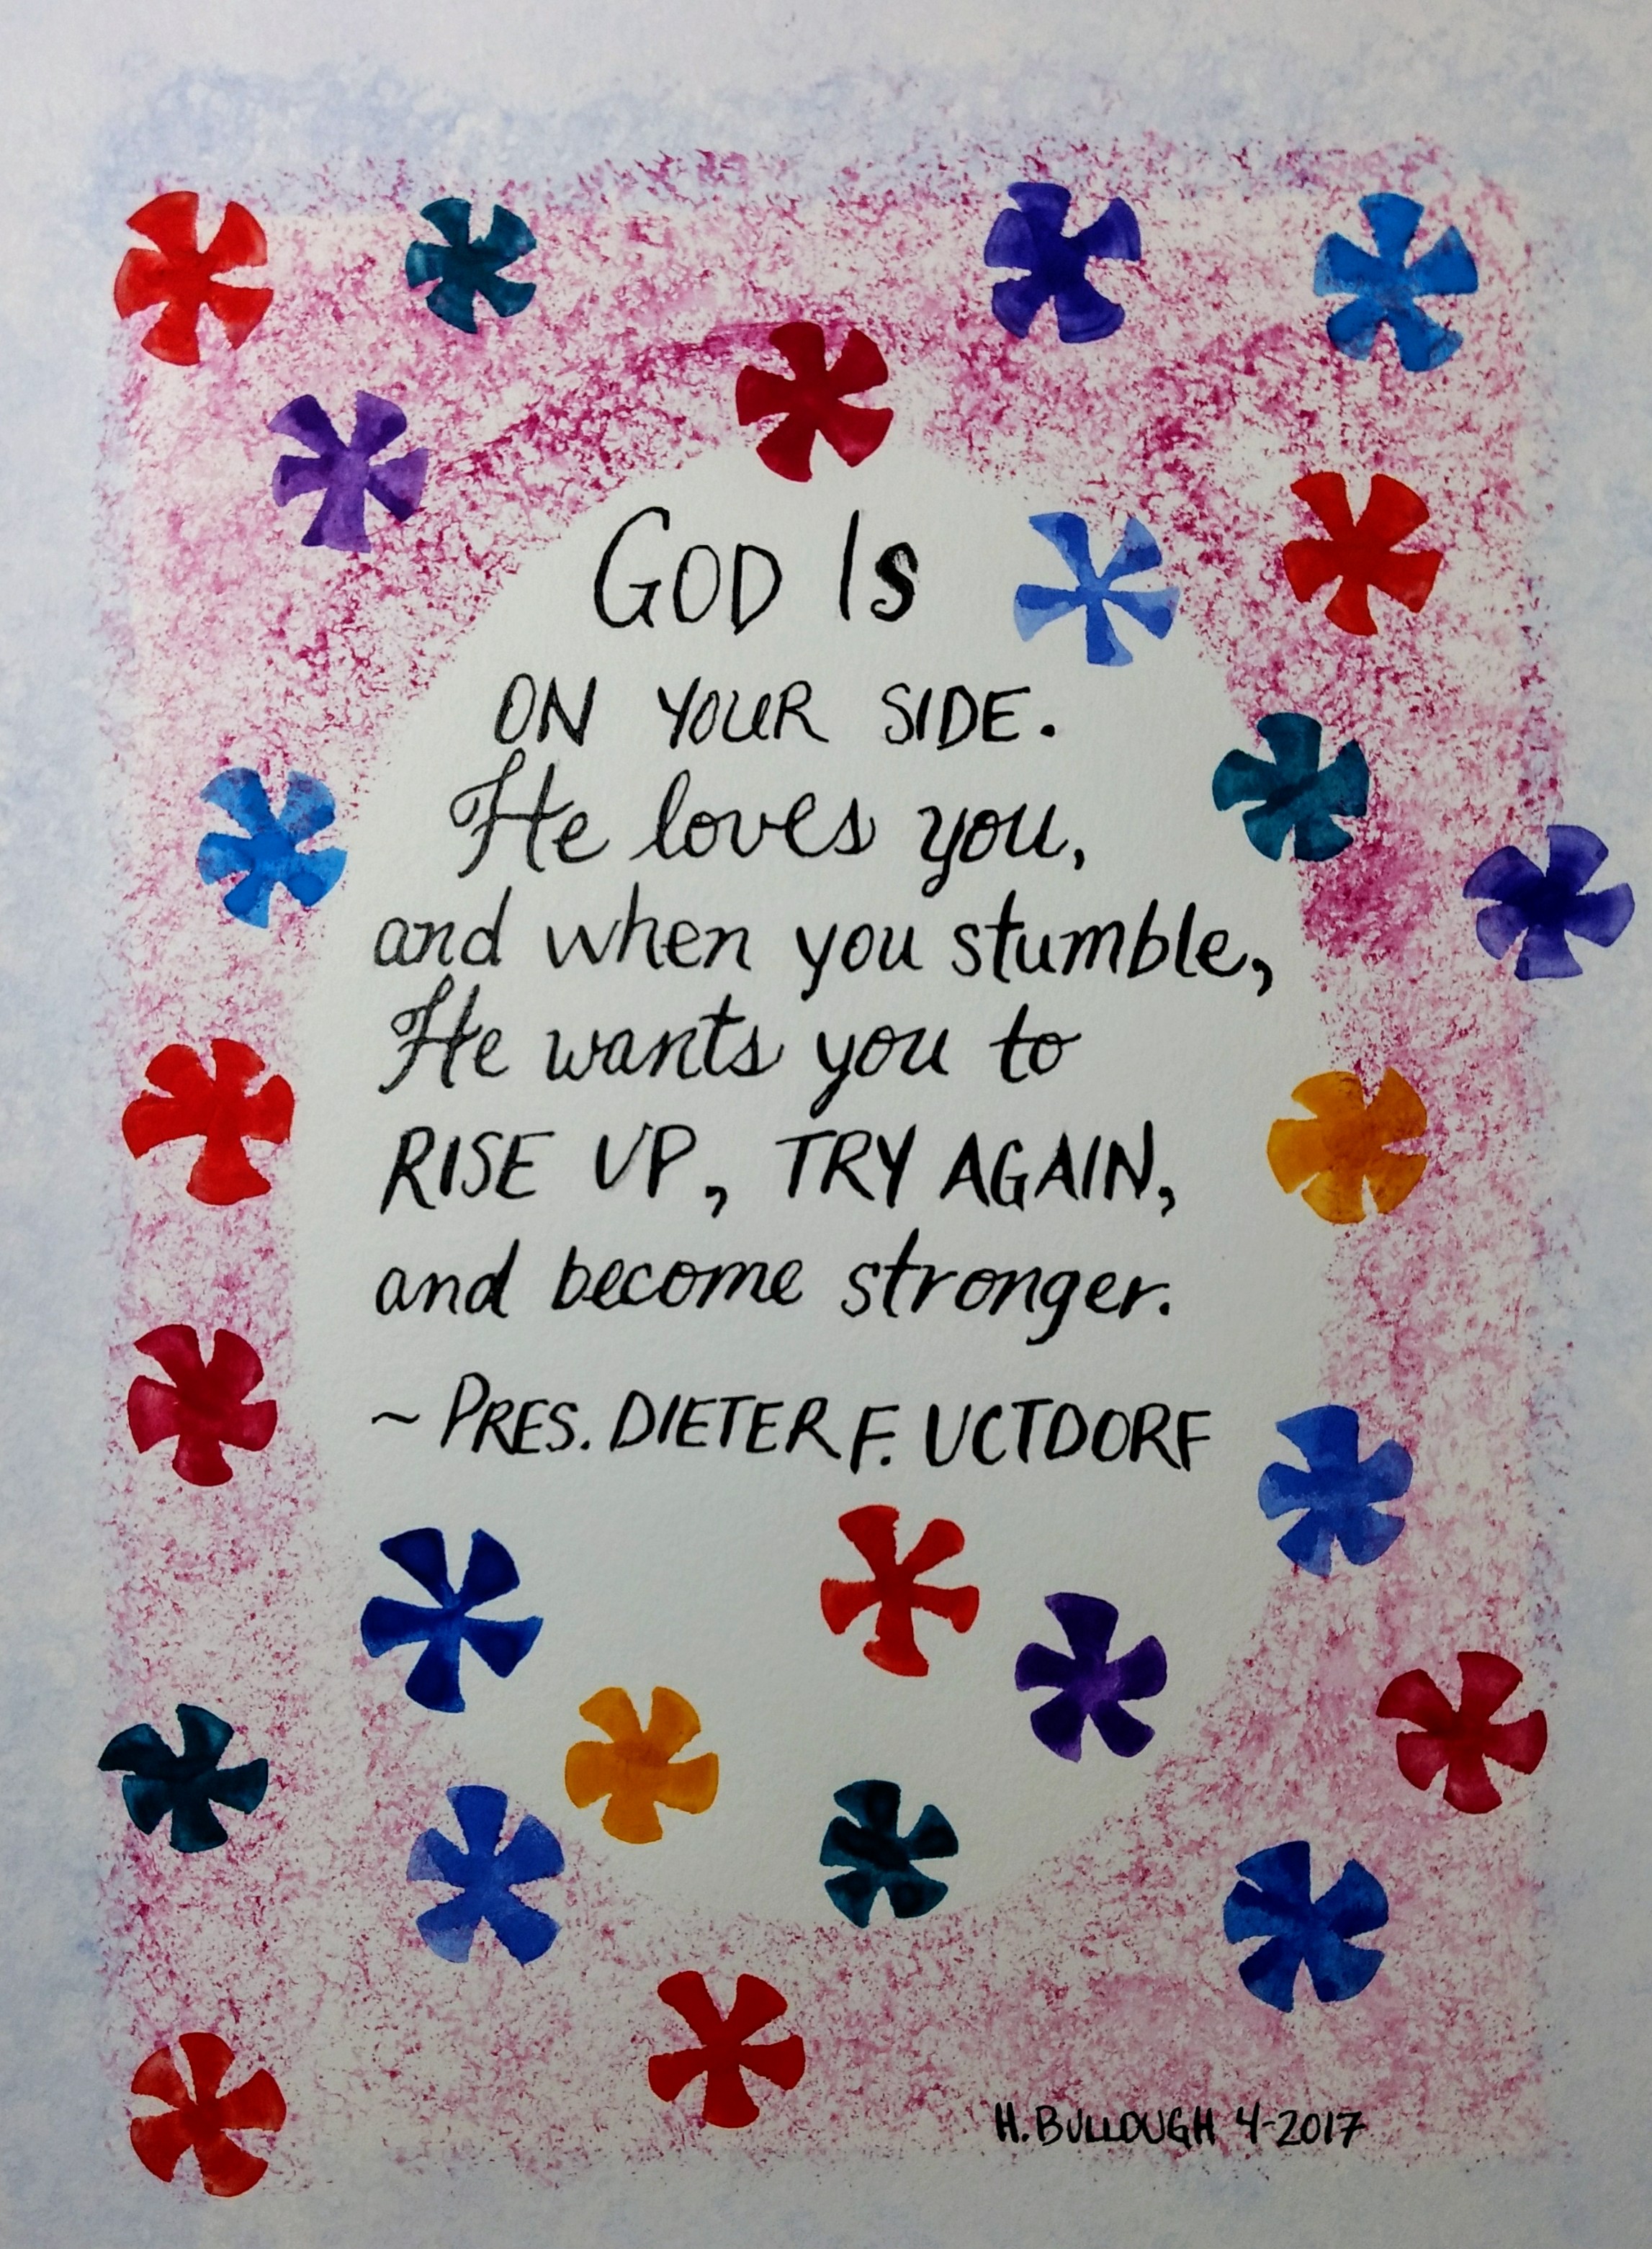 GOD Is
ON YOUR SIDE.
He loves you,
and when you stumble,
He wants you to
RISE UP, TRY AGAIN,
and become stronger.
~ PRES. DIETER F. UCTDORF
H. BULLOUGH 4-2017